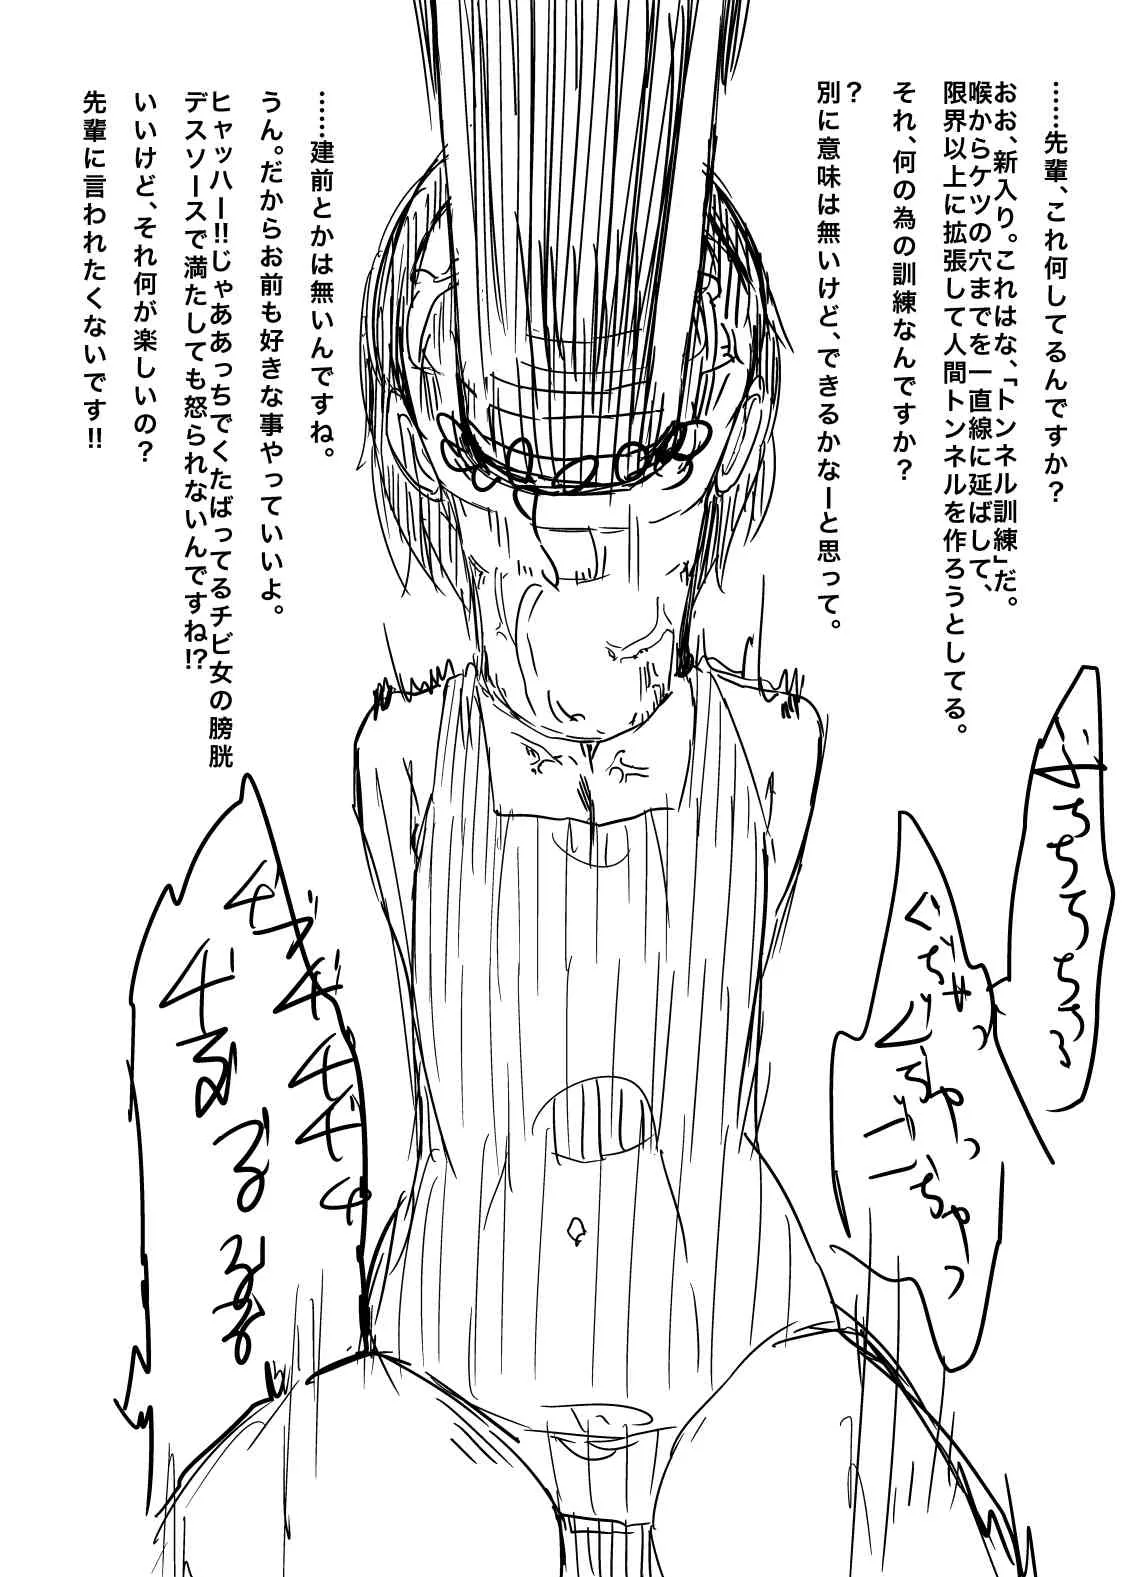 ……先輩、これ何してるんですか？
おお、新入り。これはな、「トンネル訓練」だ。
喉からケツの穴までを一直線に延ばして、
限界以上に拡張して人間トンネルを作ろうとしてる。
それ、何の為の訓練なんですか？
？
別に意味は無いけど、できるかなーと思って。
……建前とかは無いんですね。
うん。だからお前も好きな事やっていいよ。
ヒャッハー!!じゃああっちでくたばってるチビ女の膀胱
デスソースで満たしても怒られないんですね!?
いいけど、それ何が楽しいの？
先輩に言われたくないです!!